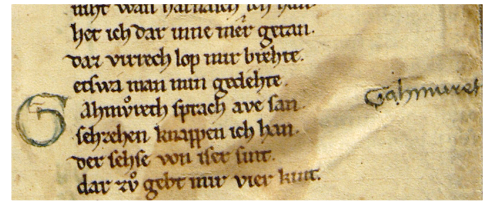 niht wan harnasch ich han
het ich dar inne mer getan.
daz virrech lop mir brehte.
etswa man min gedehte.
Gahmvrech sprach ave san
sehzehen knappen ich han.
der sehse von iser sint.
dar zv̊ gebt mir vier kint.
Gahmuret